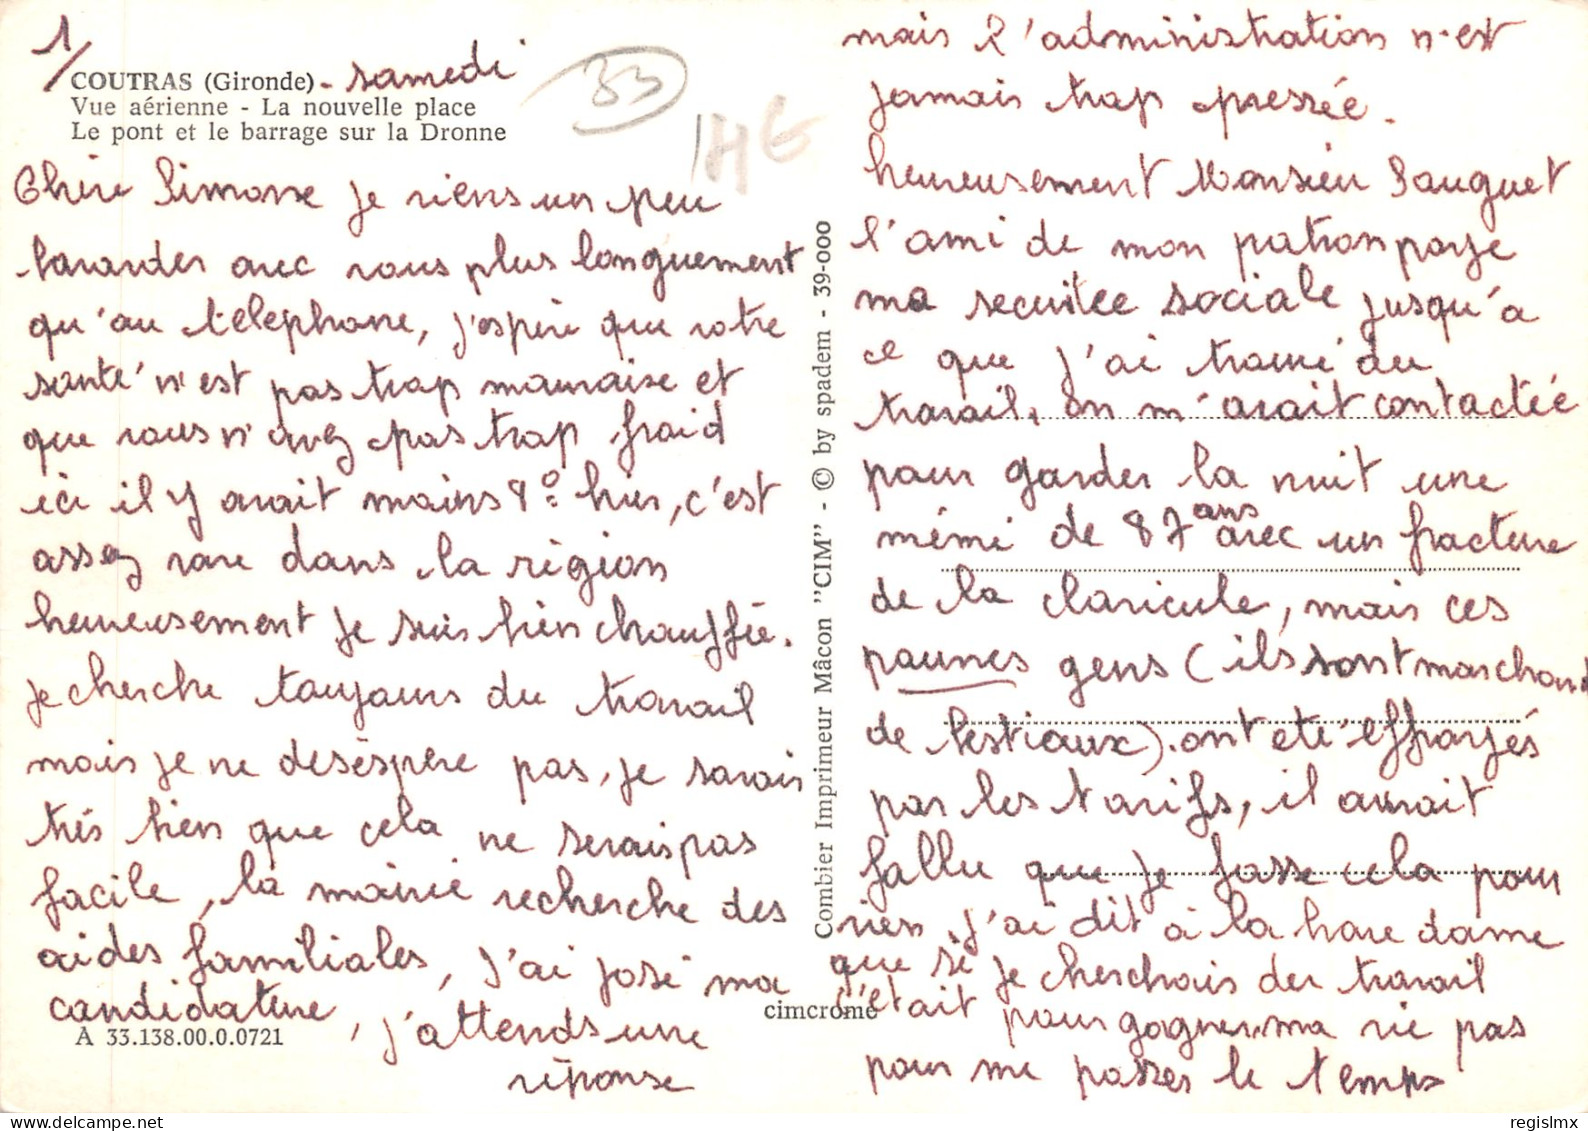 1/
COUTRAS (Gironde) - samedi
Vue aérienne - La nouvelle place
Le pont et le barrage sur la Dronne
33
HG
Chère Simone je viens un peu
bavarder avec vous plus longuement
qu'au télephone, j'espère que votre
santé n'est pas trop mauvaise et
que vous n'avez pas trop froid
ici il y avait moins 8° hier, c'est
assez rare dans la région
heureusement je suis bien chauffée.
je cherche toujours du travail
mais je ne deséspère pas, je savais
très bien que cela ne serais pas
facile, la mairie recherche des
aides familiales, j'ai posé ma
candidature, j'attends une
réponse
A 33.138.00.0.0721
Combier Imprimeur Mâcon "CIM" - © by spadem - 39-000
cimcrome
mais l'administration n'est
jamais trop pressée.
heureusement Monsieur Sauguet
l'ami de mon patron paye
ma securitee sociale jusqu'à
ce que j'ai trouvé du
travail, on m'avait contactée
pour garder la nuit une
mémé de 87 ans avec un fracture
de la clavicule, mais ces
pauvres gens (ils sont marchand
de bestiaux). ont été effrayés
par les tarifs, il aurait
fallu que je fasse cela pour
rien, j'ai dit à la dame
que si je cherchais du travail
c'était pour gagner ma vie pas
pour me passer le temps
regislmx